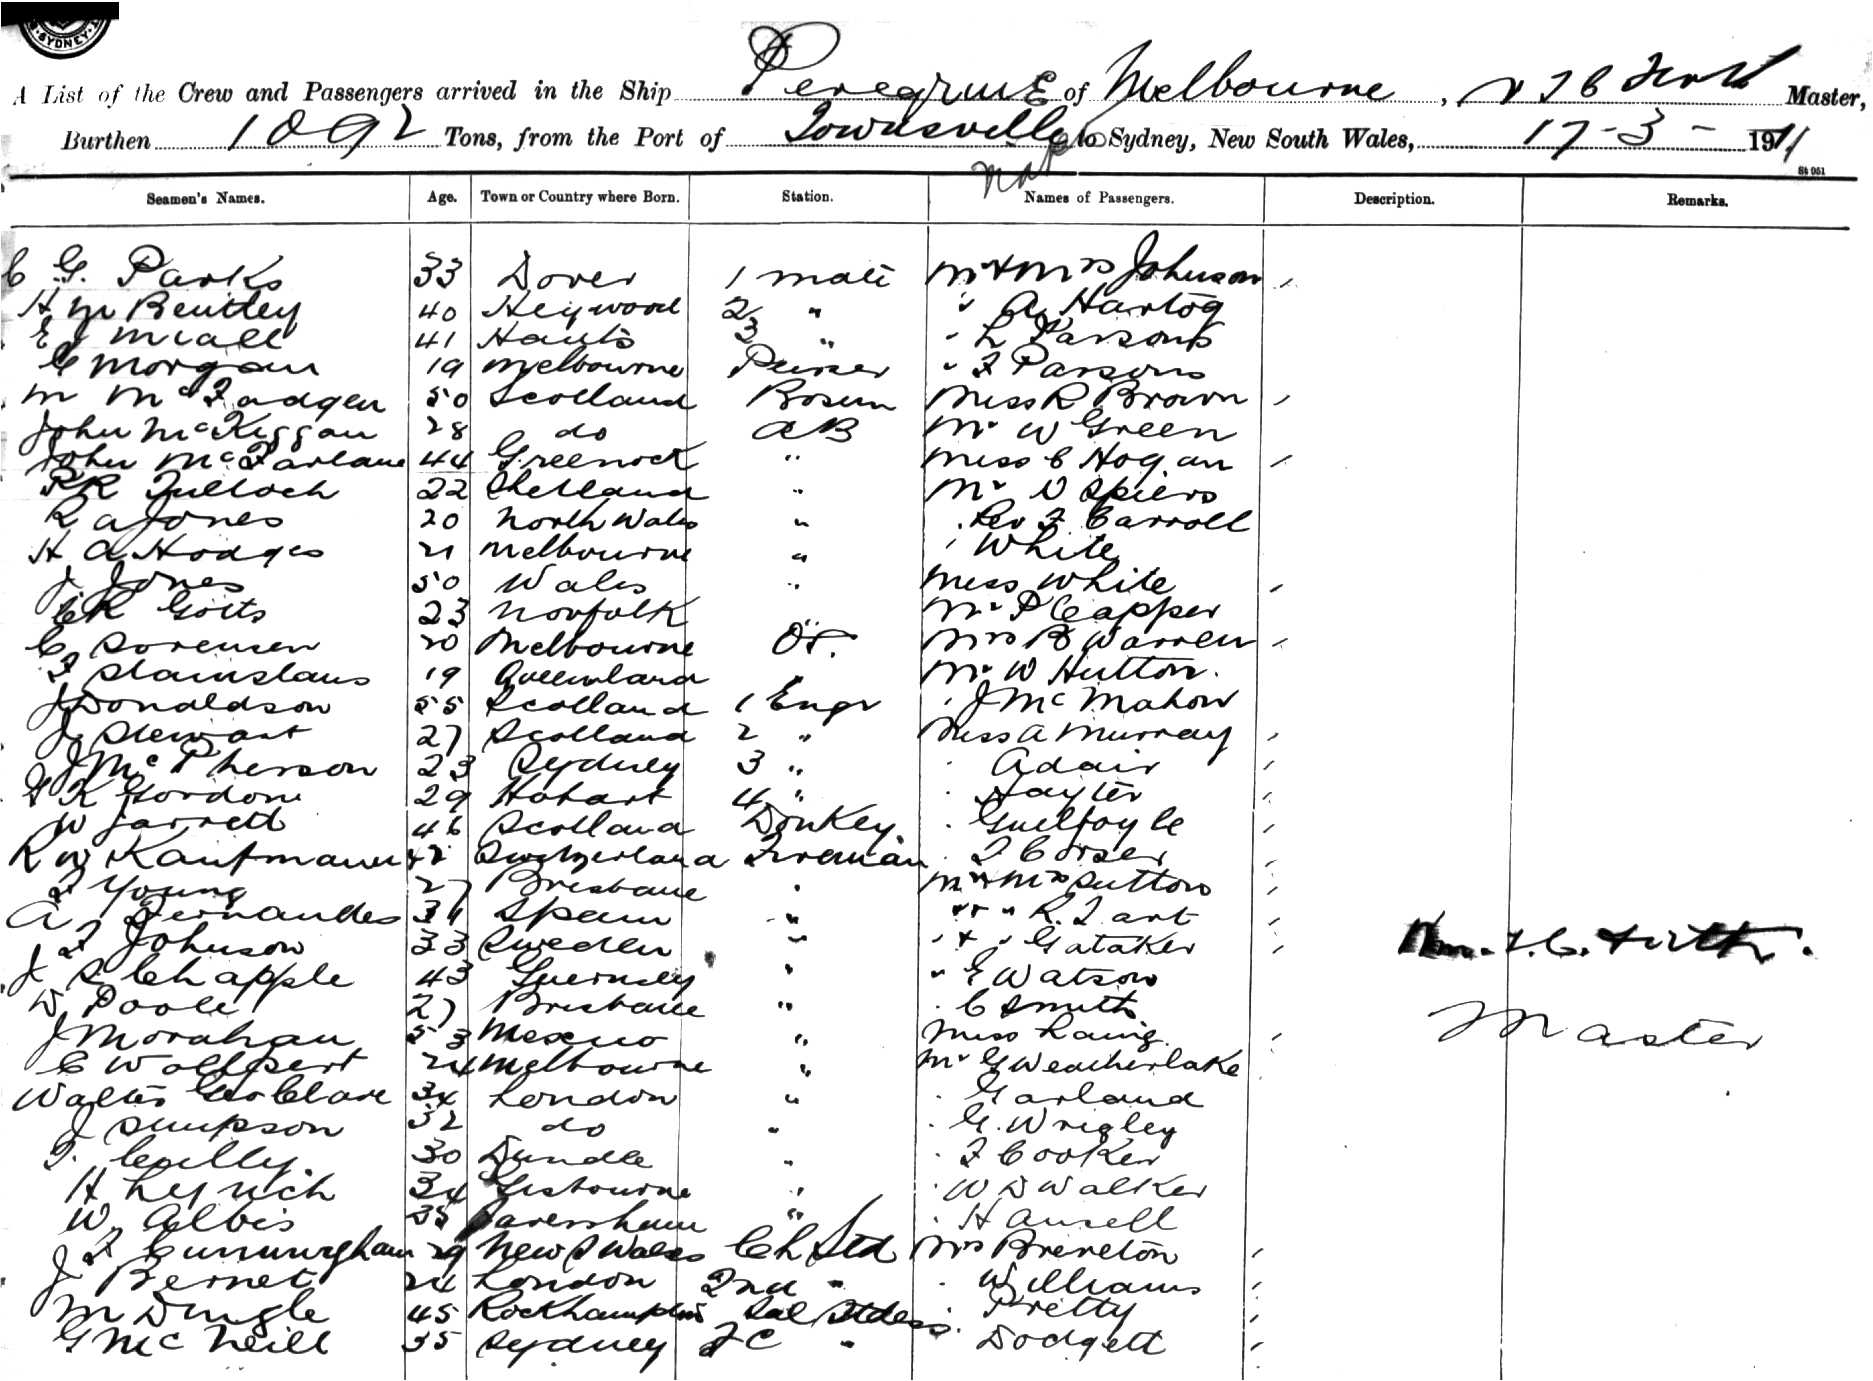 SYDNEY
A List of the Crew and Passengers arrived in the Ship Peregrine of Melbourne, Master,
Burthen 1092 Tons, from the Port of Townsville to Sydney, New South Wales, 17-3-1911
St 051
Seamen's Names. Age. Town or Country where Born. Station. Names of Passengers. Description. Remarks.
C G. Parks 33 Dover 1 mate Mr & Mrs Johnson
H M Bentley 40 Heywood 2 " " A Hartog
E Miall 41 Hants 3 " " L Parsons
C Morgan 19 Melbourne Purser " F Parsons
M McFadgen 50 Scotland Bosun Miss R Brown
John McKiggan 28 do AB Mr W Green
John McFarlane 44 Greenock " Miss C Hogan
P R Tulloch 22 Shetland " Mr D Spiers
R A Jones 20 North Wales " " Rev F Carroll
H A Hodges 21 Melbourne " " White
J Jones 50 Wales " Miss White
C R Goits 23 Norfolk " Mr P Capper
C Sorensen 20 Melbourne O.S. Mrs B Warren
F Stainslaus 19 Queensland " Mr W Hutton.
J Donaldson 55 Scotland 1 Engr " J McMahon
J Stewart 27 Scotland 2 " Miss A Murray
J McPherson 23 Sydney 3 " " Adair
G K Gordon 29 Hobart 4 " " Hayter
W Jarrett 46 Scotland Donkey. " Guilfoyle
R W Kaufmann 42 Switzerland Fireman " F Corser
F Young 27 Brisbane " Mr & Mrs Sutton
A Fernandes 31 Spain " " & " R. Tart
J F Johnson 33 Sweden " " & " Gataker
J S Chapple 43 Guernsey " " E Watson
W Poole 27 Brisbane " " C Smith
J Morahan 53 Mexico " Miss Laing
C Wollpert 24 Melbourne " Mr G Weatherlake
Walter Geo Clare 34 London " " Garland
J Simpson 32 do " " G. Wrigley
T. Cully. 30 Dundee " " F Cooker
H Leyrich 34 Gisbourne " " W D Walker
W. Albis 35 Faversham " " H Ansell
J F Cunningham 29 New S Wales Ch Std Mrs Brereton
J Bernet 24 London 2nd " " Williams
M Dingle 45 Rockhampton Sal Stdess " Pretty
G McNeill 35 Sydney F C " " Dodgett
Master